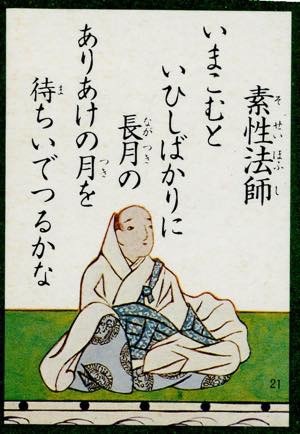 素性法師
そせいほふし
いまこむと
いひしばかりに
長月の
ながつき
ありあけの月を
つき
待ちいでつるかな
ま
21